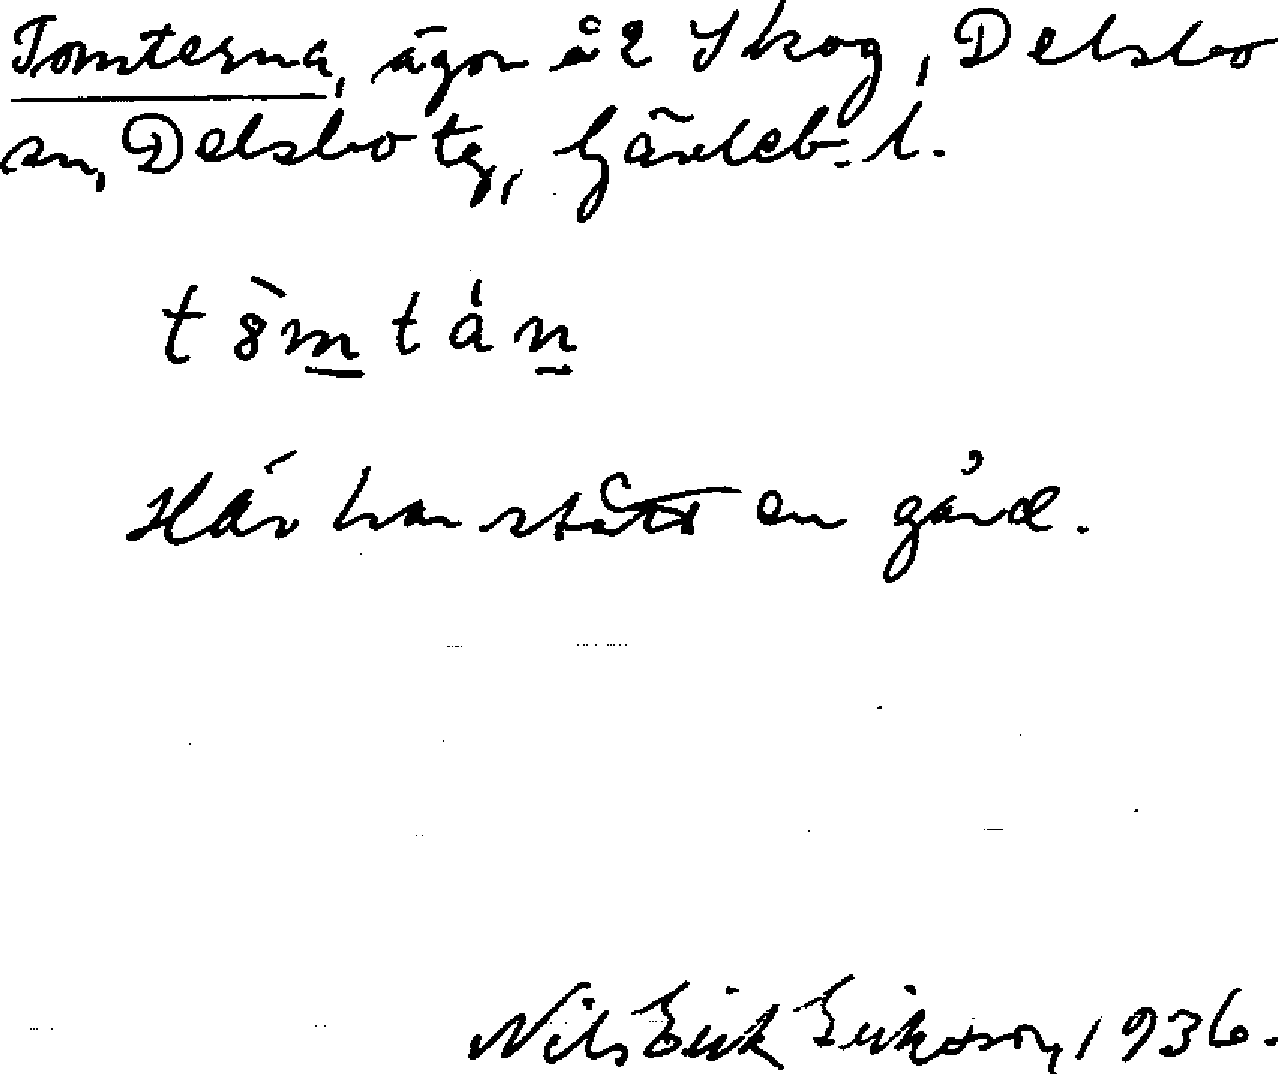 Tomterna, ägor å 2 Skog, Delsbo
sn, Delsbo tg, Gävleb. l.
tò̀mtán
Här har stått en gård.
Nils Erik Eriksson, 1936.